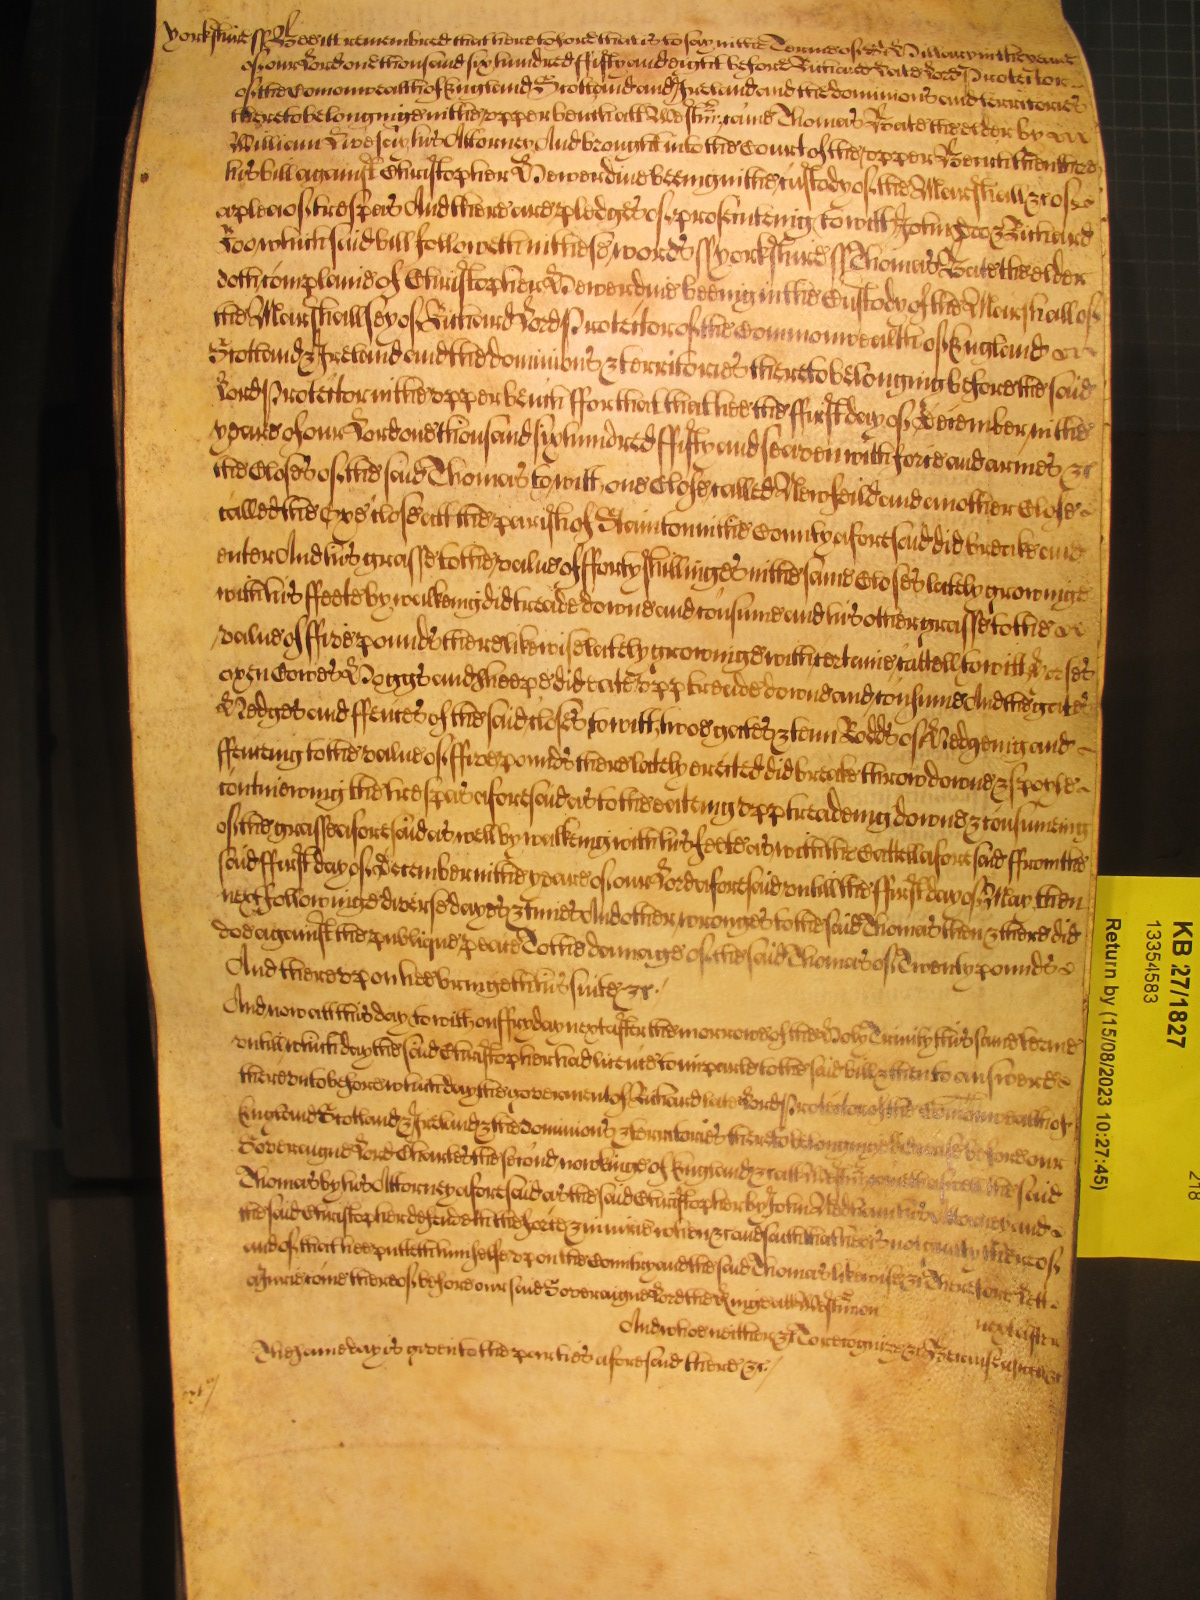 Yorkshire ss Bee itt remembred that heretofore that is to say in the Terme of St Hillary in the yeare
of our Lord one thousand six hundred fifty and eight before Richard late Lord Protector
of the Comonwealth of England Scotland and Ireland and the dominions and territories
thereto belonginge in the upper bench att Westmr came Thomas Bate the elder by
William Livesey his Attorney And brought into the Court of the upper Bench then there
his bill against Christopher Hewerdine beeing in the custody of the Marshall &c of
a plea of trespas And there are pledges of prosecuteing to witt John Doo & Richard
Roo which said bill followeth in these words ss Yorkshire ss Thomas Bate the elder
doth complaine of Christopher Hewerdine beeing in the Custody of the Marshall of
the Marshallsey of Richard Lord Protector of the Commonwealth of England
Scotland & Ireland and the dominions & territories thereto belonging before the said
Lord Protector in the upper bench ffor that that hee the ffirst day of December in the
yeare of our Lord one thousand six hundred ffifty and seaven with force and armes &c
the Closes of the said Thomas to witt one Close called Newfeild and another Close
called the Oxe close att the parish of Stainton in the County aforesaid did breake and
enter And his grasse to the value of fforty shillinges in the same Closes lately growinge
with his ffeete by walkeing did treade downe and consume and his other grasse to the
value of ffive pounds there likewise lately growinge with certaine cattell to witt Horses
oxen Cowes Hoggs and sheepe did eate upp treade downe and consume And the gates
Hedges and ffences of the said closes to witt twoe gates & tenn Rodds of Hedgeing and
ffenceing to the value of ffive pounds there lately erected did breake throw downe & spoyle
continewing the trespas aforesaid as to the eateing upp treadeing downe & consumeing
of the grasse aforesaid as well by walkeing with his feete as with the Cattell aforesaid ffrom the
said ffirst day of December in the yeare of our Lord aforesaid untill the ffirst day of May then
next followinge diverse dayes & times And other wronges to the said Thomas then & there did
doe against the publique peace To the damage of the said Thomas of Twenty pounds
And thereupon hee bringeth his suite &c.
And now att this day to witt on ffryday next after the morrow of the Holy Trinity this same terme
untill which day the said Christopher had licence to imparle to the said bill & then to answere
thereunto before which day the goverment of Richard late Lord Protector of the Comonwealth of
England Scotland & Ireland & the dominions & territories thereto belonginge before our
Soveraigne Lord Charles the second now kinge of England &c att Westmr came the said
Thomas by his Attorney aforesaid as the said Christopher by John his Attorney and
the said Christopher defendeth the force & iniurie when &c and saith that hee is not guilty thereof
and of that hee putteth himselfe upon the Country and the said Thomas likewise &c Therefore lett
a Jurie come thereof before our said Soveraigne Lord the kinge att Westm on next after
And whoe neither &c To recognize &c Because aswell &c
The same day is given to the parties aforesaid there &c
KB 27/1827
13354583
Return by (15/08/2023 10:27:45)
218